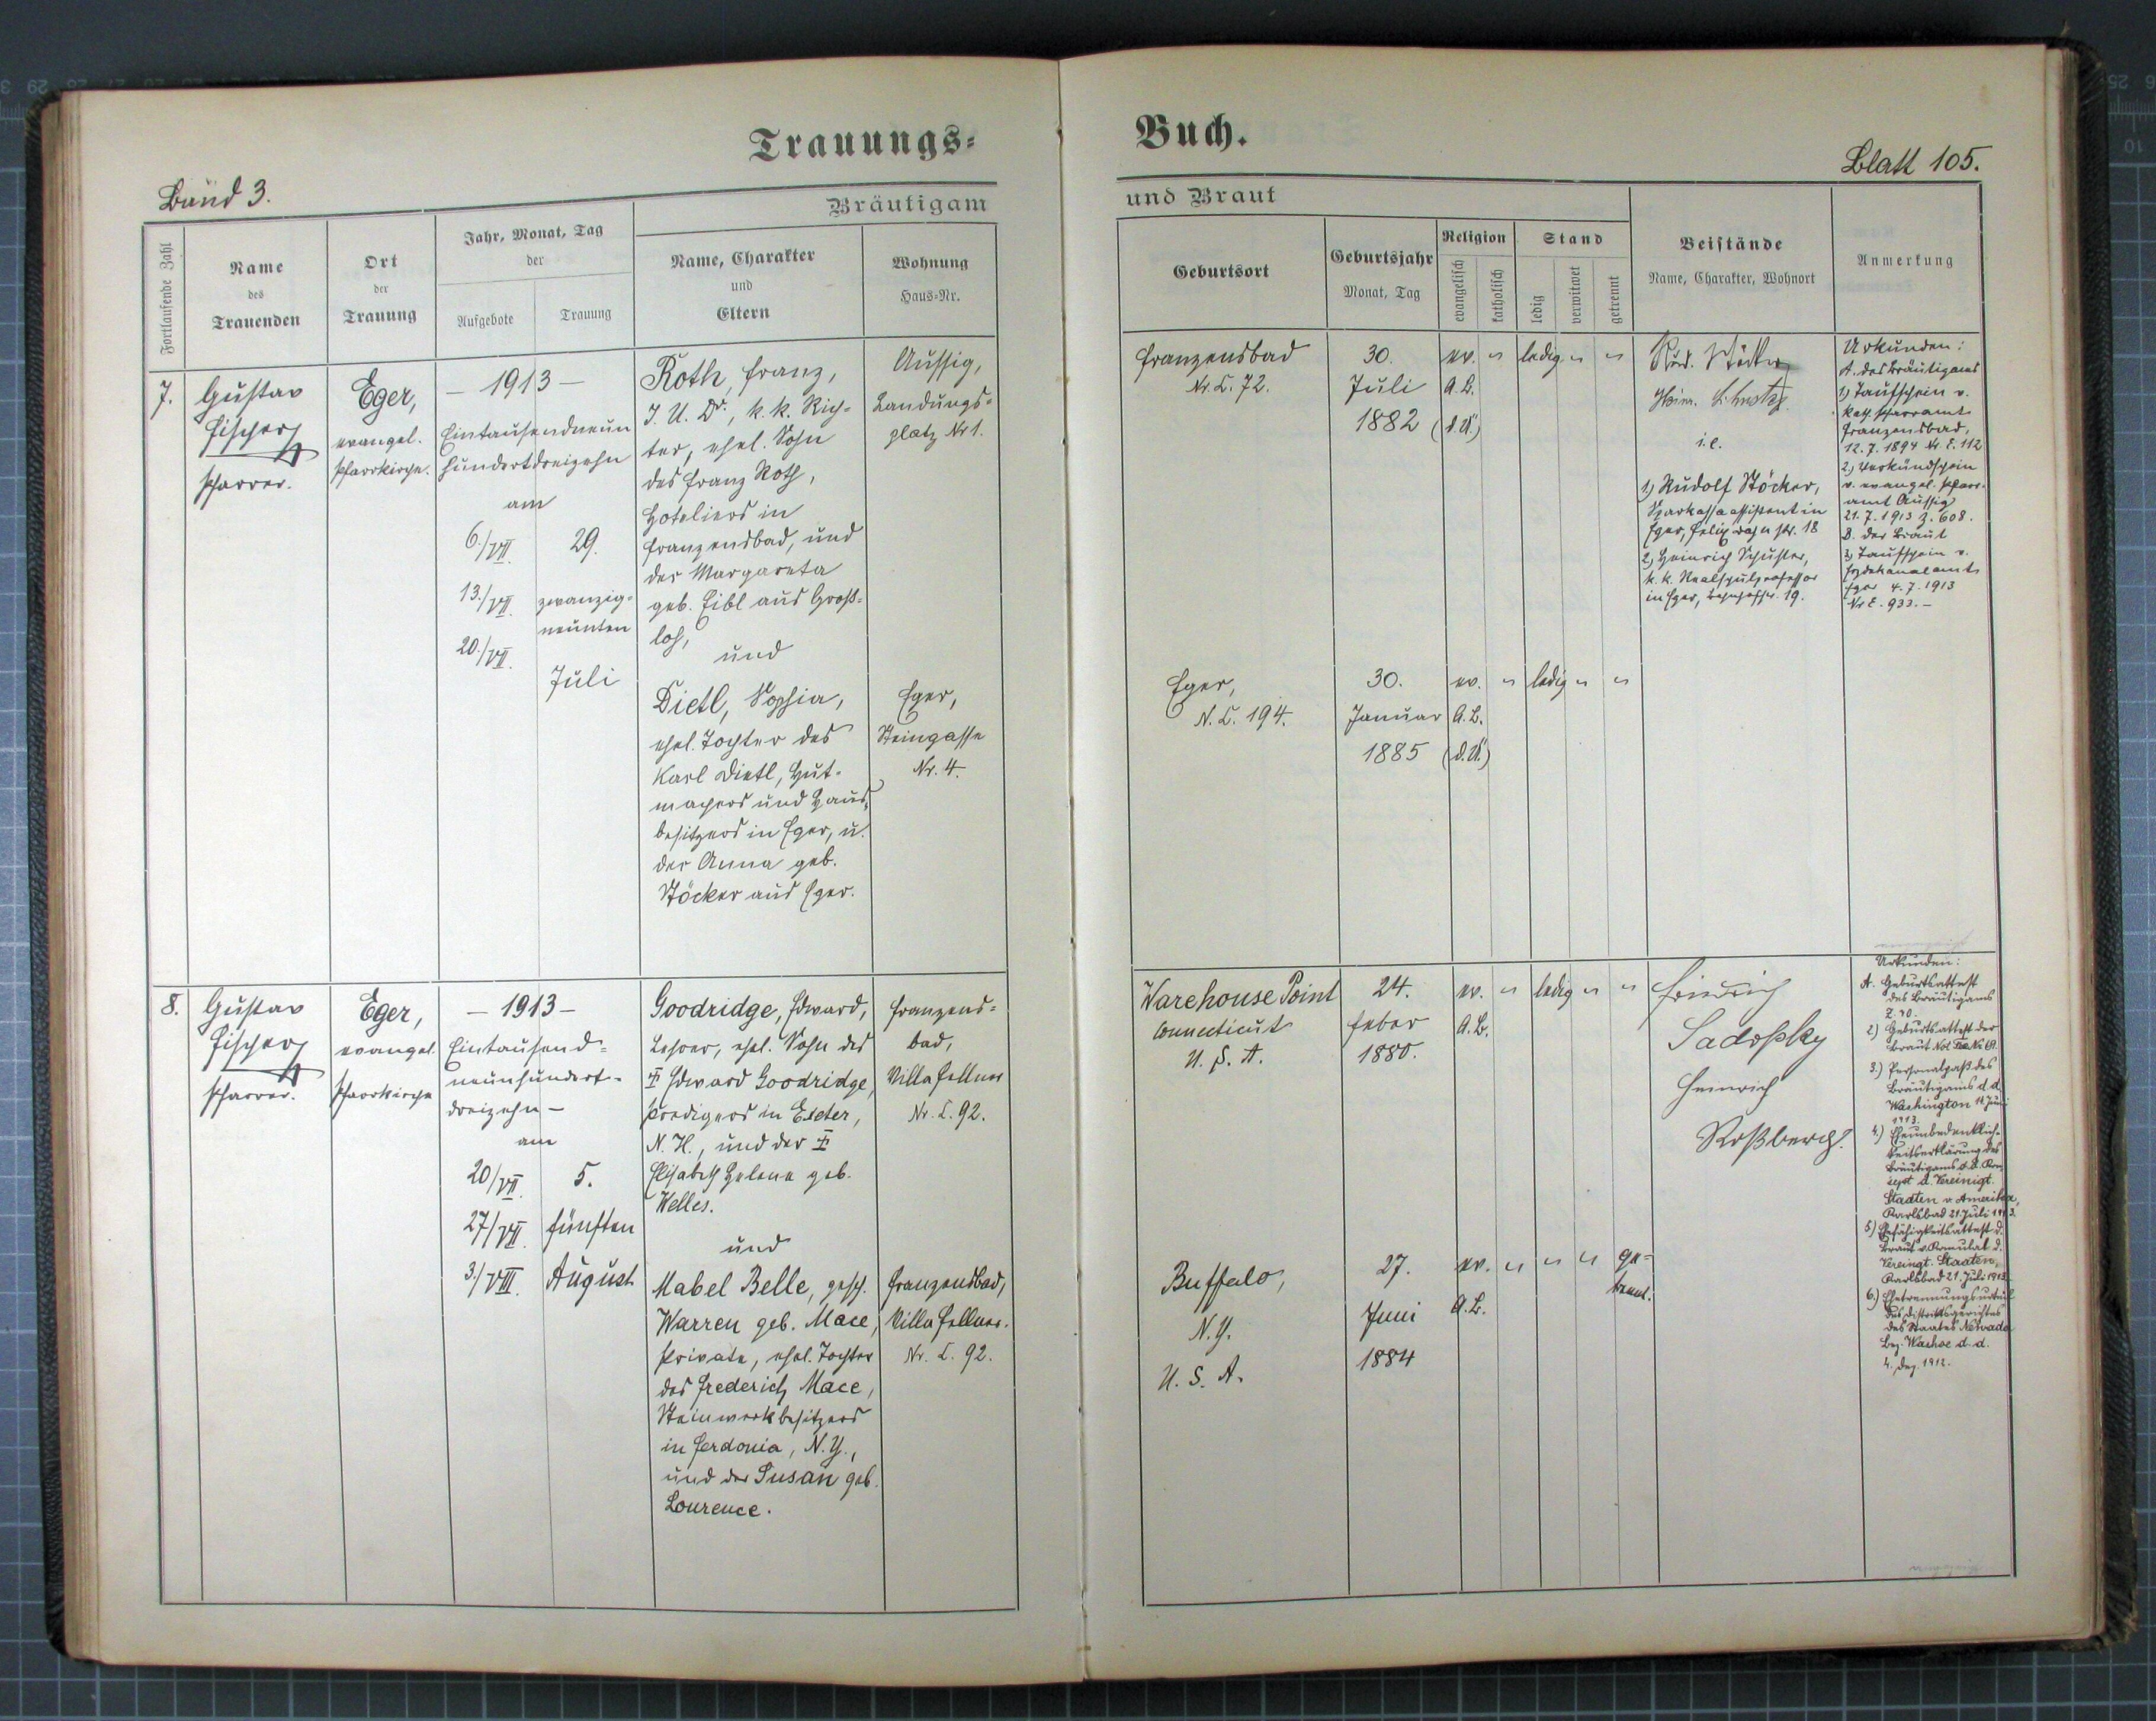 Trauungs-
Buch.
Band 3.
Blatt 105.
Bräutigam
und Braut
Fortlaufende Zahl
Name
des
Trauenden
Ort
der
Trauung
Jahr, Monat, Tag
der
Aufgebote
Trauung
Name, Charakter
und
Eltern
Wohnung
Haus-Nr.
Geburtsort
Geburtsjahr
Monat, Tag
Religion
evangelisch
katholisch
Stand
ledig
verwitwet
getrennt
Beistände
Name, Charakter, Wohnort
Anmerkung
7.
Gustav
Fischer
Pfarrer.
Eger,
evangel.
Pfarrkirche.
– 1913 –
Eintausendneun
hundertdreizehn
am
6./VII.
13./VII.
20./VII.
29.
zwanzig-
neunten
Juli
Roth, Franz,
J. U. Dr., k.k. Rich-
ter, ehel. Sohn
des Franz Roth,
Hoteliers in
Franzensbad, und
der Margareta
geb. Eibl aus Groß-
loh,
und
Dietl, Sophia,
ehel. Tochter des
Karl Dietl, Hut-
machers und Haus-
besitzers in Eger, u.
der Anna geb.
Stöcker aus Eger.
Aussig,
Landungs-
platz Nr 1.
Eger,
Steingasse
Nr. 4.
Franzensbad
Nr. C. 72.
30.
Juli
1882
ev. " ledig " "
A. B.
(d. U.)
Rud. Stöcker
Heinr. Schuster
i. e.
1) Rudolf Stöcker,
Sparkassaassistent in
Eger, 18
2) Heinrich Schuster,
k. k. Realschulprofessor
in Eger, Bahnhofstr. 19.
Urkunden:
A. des Bräutigams
1) Taufschein v.
kath. Pfarramt
Franzensbad,
12. 7. 1894 Nr. E. 112
2) Verkündschein
v. evangel. Pfarr-
amt Aussig
21. 7. 1913 Z. 608.
B. der Braut
3) Taufschein v.
Erzdekanalamt
Eger 4. 7. 1913
Nr E. 933. –
Eger,
N. C. 194.
30.
Januar
1885
ev. " ledig " "
A. B.
(d. U.)
8.
Gustav
Fischer
Pfarrer.
Eger,
evangel.
Pfarrkirche
– 1913 –
Eintausend-
neunhundert-
dreizehn –
am
20/VII.
27/VII.
3./VIII.
5.
fünften
August
Goodridge, Edward,
Lehrer, ehel. Sohn des
‡ Edward Goodridge,
Predigers in Exeter,
N. H., und der ‡
Elisabeth Helene geb.
Welles.
und
Mabel Belle, gesch.
Warren geb. Mace,
Private, ehel. Tochter
des Frederich Mace,
Steinwerkbesitzers
in Ferdonia, N. Y.,
und der Susan geb.
Lourence.
Franzens-
bad,
Villa Fellner
Nr. C. 92.
Franzensbad,
Villa Fellner.
Nr. C. 92.
Warehouse Point
Connecticut
U. S. A.
24.
Feber
1880.
ev. " ledig " "
A. B.
Friedrich
Sadofsky
Heinrich
Roßberg.
Urkunden:
A. Geburtsattest
des Bräutigams
Z. 70.
2) Geburtsattest der
Braut
3.) Personalpaß des
Bräutigams d. d.
Washington 11 Juni
1913.
4.) Eheunbedenklich-
keitserklärung des
Bräutigams
d. Vereinigt.
Staaten v. Amerika,
Karlsbad 21 Juli 1913.
5) Ehefähigkeitsattest d.
Braut v. Konsulat d.
Vereinigt. Staaten,
Karlsbad 21. Juli 1913.
6.) Ehetrennungsurteil
des Distriktsgerichtes
des Staates Nevada
Bez. Washoe d. d.
4. Dez. 1912.
Buffalo,
N. Y.
U. S. A.
27.
Juni
1884
ev. " " " ge-
trennt.
A. B.